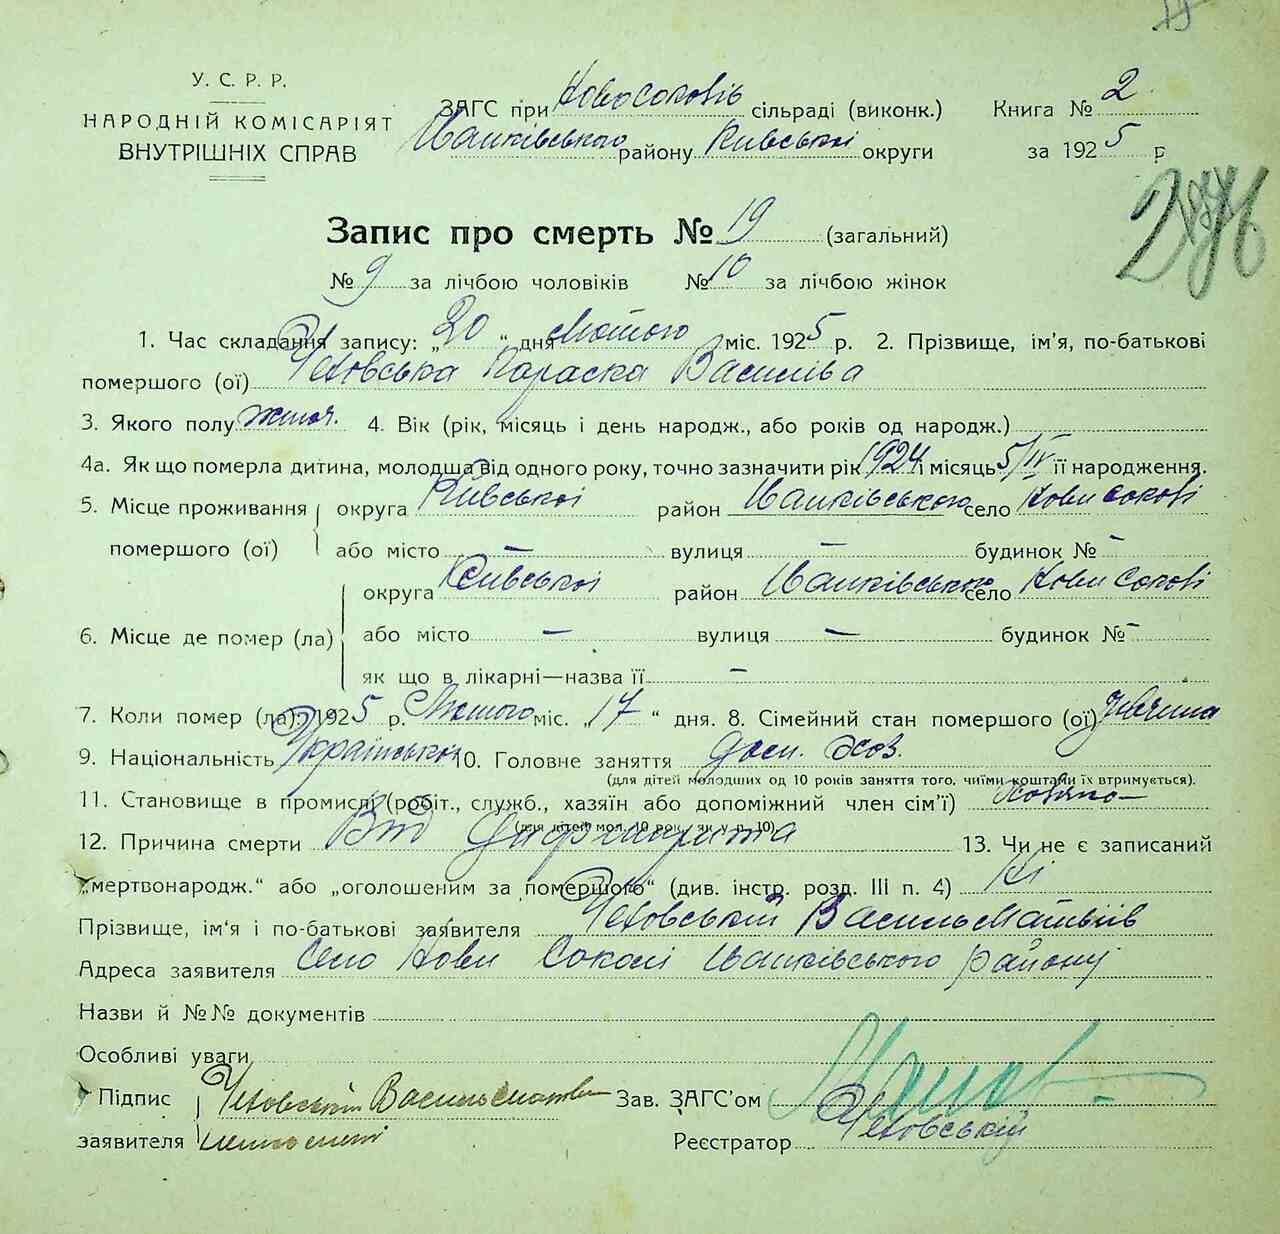 У. С. Р. Р.
НАРОДНІЙ КОМІСАРІЯТ
ВНУТРІШНІХ СПРАВ
ЗАГС при Новосоковів сільраді (виконк.)
Іванківського району Київської округи
Книга № 2
за 1925 р
Запис про смерть № 19 (загальний)
№ 9 за лічбою чоловіків № 10 за лічбою жінок
1. Час складання запису: „20“ дня Лютого міс. 1925 р. 2. Прізвище, ім'я, по-батькові
помершого (ої) Чеховська Параска Василіва
3. Якого полу жіноч. 4. Вік (рік, місяць і день народж., або років од народж.)
4а. Як що померла дитина, молодша від одного року, точно зазначити рік 1924 і місяць 5/IV її народження.
5. Місце проживання округа Київської район Іванківського село Нови Сокові
помершого (ої) або місто — вулиця — будинок № —
округа Київської район Іванківського село Нови Сокові
6. Місце де помер (ла) або місто — вулиця — будинок № —
як що в лікарні—назва її —
7. Коли помер (ла): 1925 р. Лютого міс. „17“ дня. 8. Сімейний стан помершого (ої) дівчина
9. Національність Українськой 10. Головне заняття дом. хоз.
(для дітей молодших од 10 років заняття того, чиїми коштами їх втримується).
11. Становище в промислі (робіт., служб., хазяїн або допоміжний член сім'ї)
(для дітей мол. 10 рок. як у п. 10)
12. Причина смерти Від 13. Чи не є записаний
„мертвонародж.“ або „оголошеним за помершого“ (див. інстр. розд. III п. 4) Ні
Прізвище, ім'я і по-батькові заявителя Чеховський Василь Матвіїв
Адреса заявителя Село Нови Соколі Іванківського району
Назви й №№ документів
Особливі уваги
Підпис Чеховський Василь Зав. ЗАГС'ом
заявителя Реєстратор Чеховський